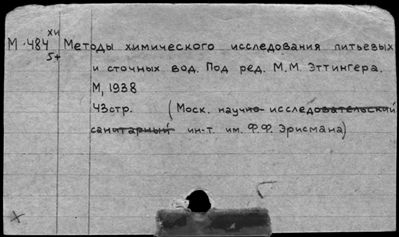 XII
М-484 Методы химического исследования питьевых
5+ и сточных вод. Под ред. М.М. Эттингера.
М, 1938
43стр. (Моск. научно-исследовательский
санитарный ин-т. им. Ф.Ф. Эрисмана)